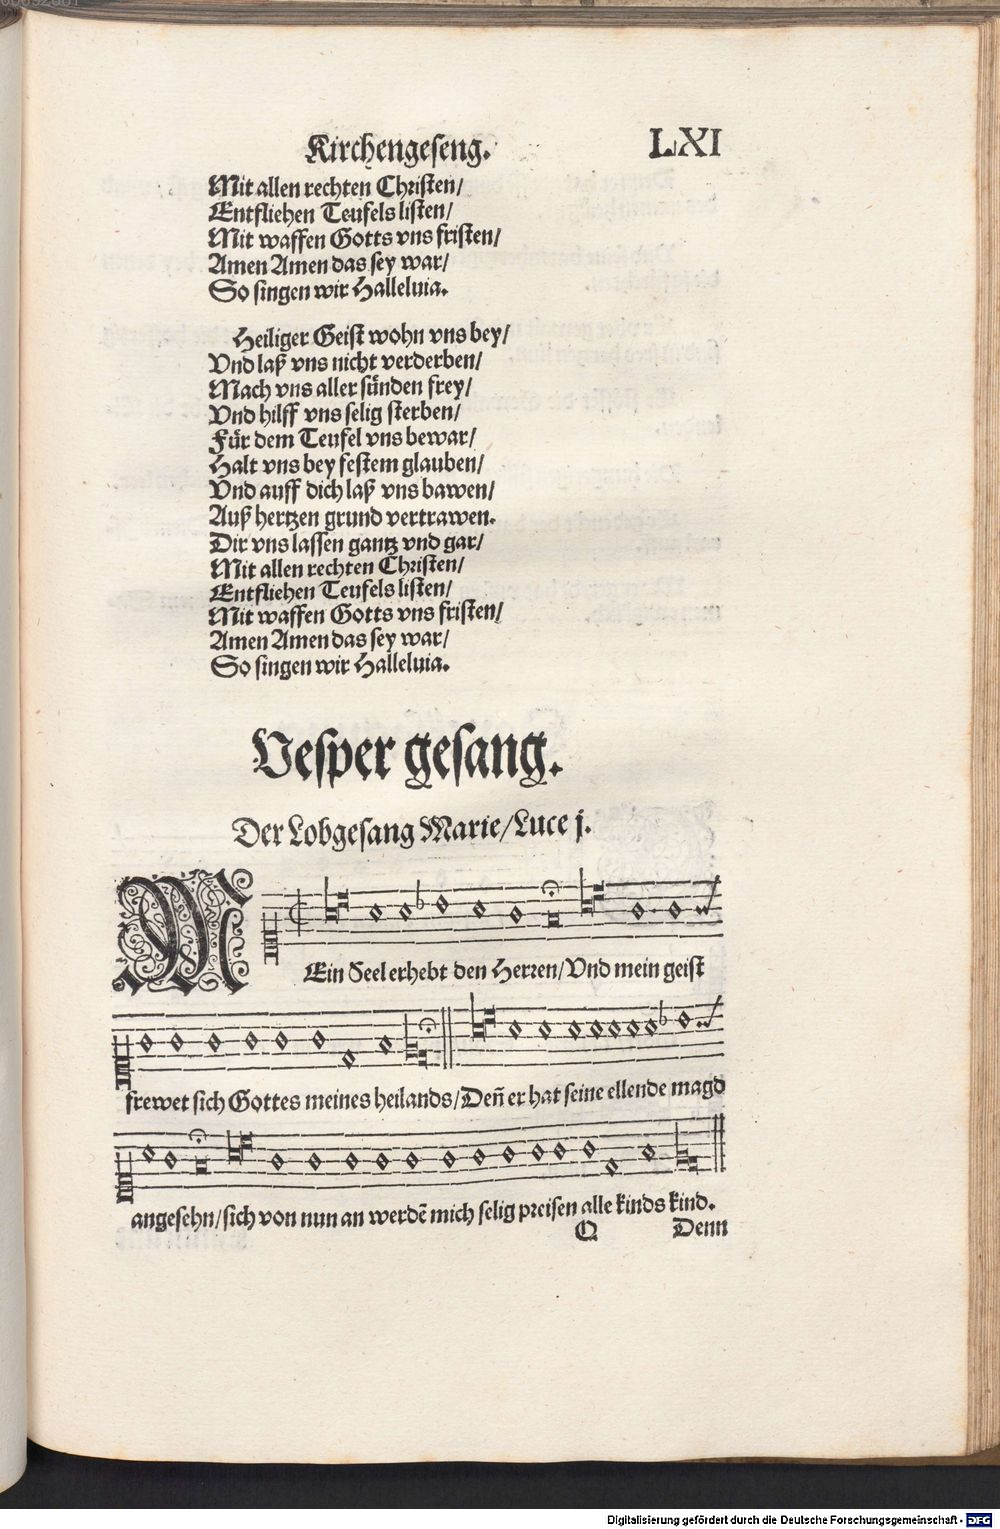 Kirchengeseng. LXI
Mit allen rechten Christen/
Entfliehen Teufels listen/
Mit waffen Gotts vns fristen/
Amen Amen das sey war/
So singen wir Halleluia.
Heiliger Geist wohn vns bey/
Vnd laß vns nicht verderben/
Mach vns aller sünden frey/
Vnd hilff vns selig sterben/
Für dem Teufel vns bewar/
Halt vns bey festem glauben/
Vnd auff dich laß vns bawen/
Auß hertzen grund vertrawen.
Dir vns lassen gantz vnd gar/
Mit allen rechten Christen/
Entfliehen Teufels listen/
Mit waffen Gotts vns fristen/
Amen Amen das sey war/
So singen wir Halleluia.
Vesper gesang.
Der Lobgesang Marie/Luce j.
MEin Seel erhebt den Herren/Vnd mein geist
frewet sich Gottes meines heilands/Den̄ er hat seine ellende magd
angesehn/sich von nun an werdē mich selig preisen alle kinds kind.
Q Denn
Digitalisierung gefördert durch die Deutsche Forschungsgemeinschaft - DFG